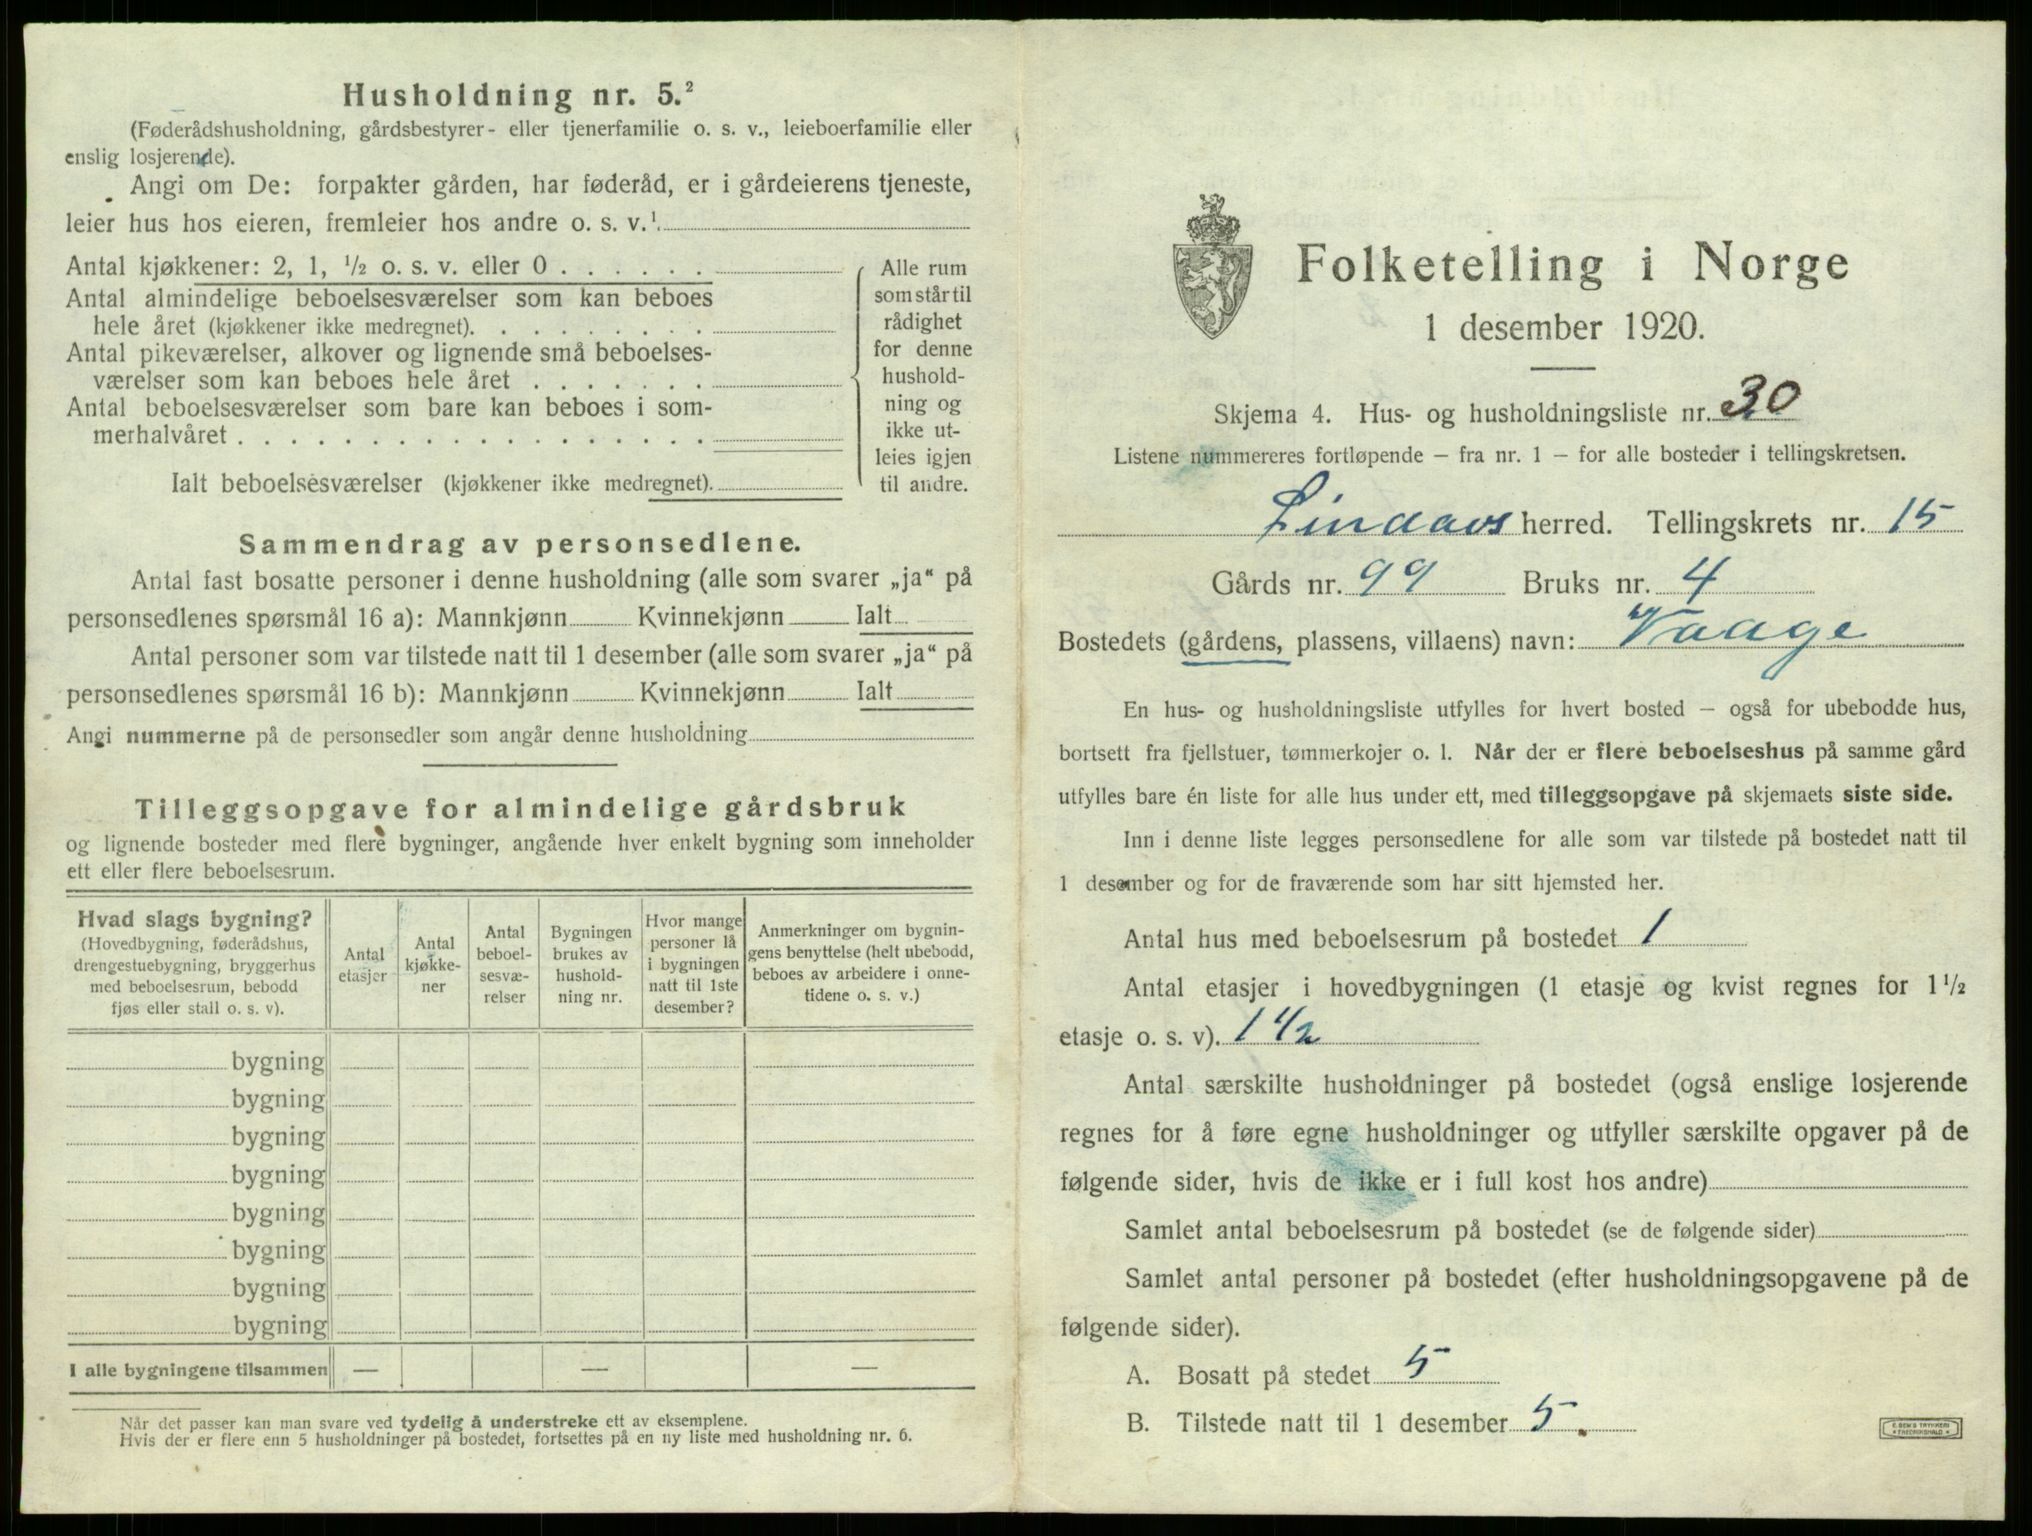 Husholdning nr. 5.²
(Føderådshusholdning, gårdsbestyrer- eller tjenerfamilie o. s. v., leieboerfamilie eller
enslig losjerende).
Angi om De: forpakter gården, har føderåd, er i gårdeierens tjeneste,
leier hus hos eieren, fremleier hos andre o. s. v.¹
Antal kjøkkener: 2, 1, ½ o. s. v. eller 0 . . . . . .
Antal almindelige beboelsesværelser som kan beboes
hele året (kjøkkener ikke medregnet). . . . . . . . .
Antal pikeværelser, alkover og lignende små beboelses-
værelser som kan beboes hele året . . . . . . .
Antal beboelsesværelser som bare kan beboes i som-
merhalvåret . . . . . . . . . . . . . . . . . .
Ialt beboelsesværelser (kjøkkener ikke medregnet).
Alle rum
som står til
rådighet
for denne
hushold-
ning og
ikke ut-
leies igjen
til andre.
Sammendrag av personsedlene.
Antal fast bosatte personer i denne husholdning (alle som svarer „ja“ på
personsedlenes spørsmål 16 a): Mannkjønn Kvinnekjønn Ialt
Antal personer som var tilstede natt til 1 desember (alle som svarer „ja“ på
personsedlenes spørsmål 16 b): Mannkjønn Kvinnekjønn Ialt
Angi nummerne på de personsedler som angår denne husholdning
Tilleggsopgave for almindelige gårdsbruk
og lignende bosteder med flere bygninger, angående hver enkelt bygning som inneholder
ett eller flere beboelsesrum.
Hvad slags bygning?
(Hovedbygning, føderådshus,
drengestuebygning, bryggerhus
med beboelsesrum, bebodd
fjøs eller stall o. s. v).
Antal
etasjer
Antal
kjøkke-
ner
Antal
beboel-
sesvæ-
relser
Bygningen
brukes av
hushold-
ning nr.
Hvor mange
personer lå
i bygningen
natt til 1ste
desember?
Anmerkninger om bygnin-
gens benyttelse (helt ubebodd,
beboes av arbeidere i onne-
tidene o. s. v.)
bygning
bygning
bygning
bygning
bygning
bygning
bygning
bygning
I alle bygningene tilsammen — — —
Når det passer kan man svare ved tydelig å understreke ett av eksemplene.
Hvis der er flere enn 5 husholdninger på bostedet, fortsettes på en ny liste med husholdning nr. 6.
Folketelling i Norge
1 desember 1920.
Skjema 4. Hus- og husholdningsliste nr. 30
Listene nummereres fortløpende – fra nr. 1 – for alle bosteder i tellingskretsen.
Lindaas herred. Tellingskrets nr. 15
Gårds nr. 99 Bruks nr. 4
Bostedets (gårdens, plassens, villaens) navn: Vaage
En hus- og husholdningsliste utfylles for hvert bosted – også for ubebodde hus,
bortsett fra fjellstuer, tømmerkojer o. l. Når der er flere beboelseshus på samme gård
utfylles bare én liste for alle hus under ett, med tilleggsopgave på skjemaets siste side.
Inn i denne liste legges personsedlene for alle som var tilstede på bostedet natt til
1 desember og for de fraværende som har sitt hjemsted her.
Antal hus med beboelsesrum på bostedet 1
Antal etasjer i hovedbygningen (1 etasje og kvist regnes for 1 ½
etasje o. s. v). 1 ½
Antal særskilte husholdninger på bostedet (også enslige losjerende
regnes for å føre egne husholdninger og utfyller særskilte opgaver på de
følgende sider, hvis de ikke er i full kost hos andre)
Samlet antal beboelsesrum på bostedet (se de følgende sider)
Samlet antal personer på bostedet (efter husholdningsopgavene på de
følgende sider).
A. Bosatt på stedet 5
B. Tilstede natt til 1 desember 5.